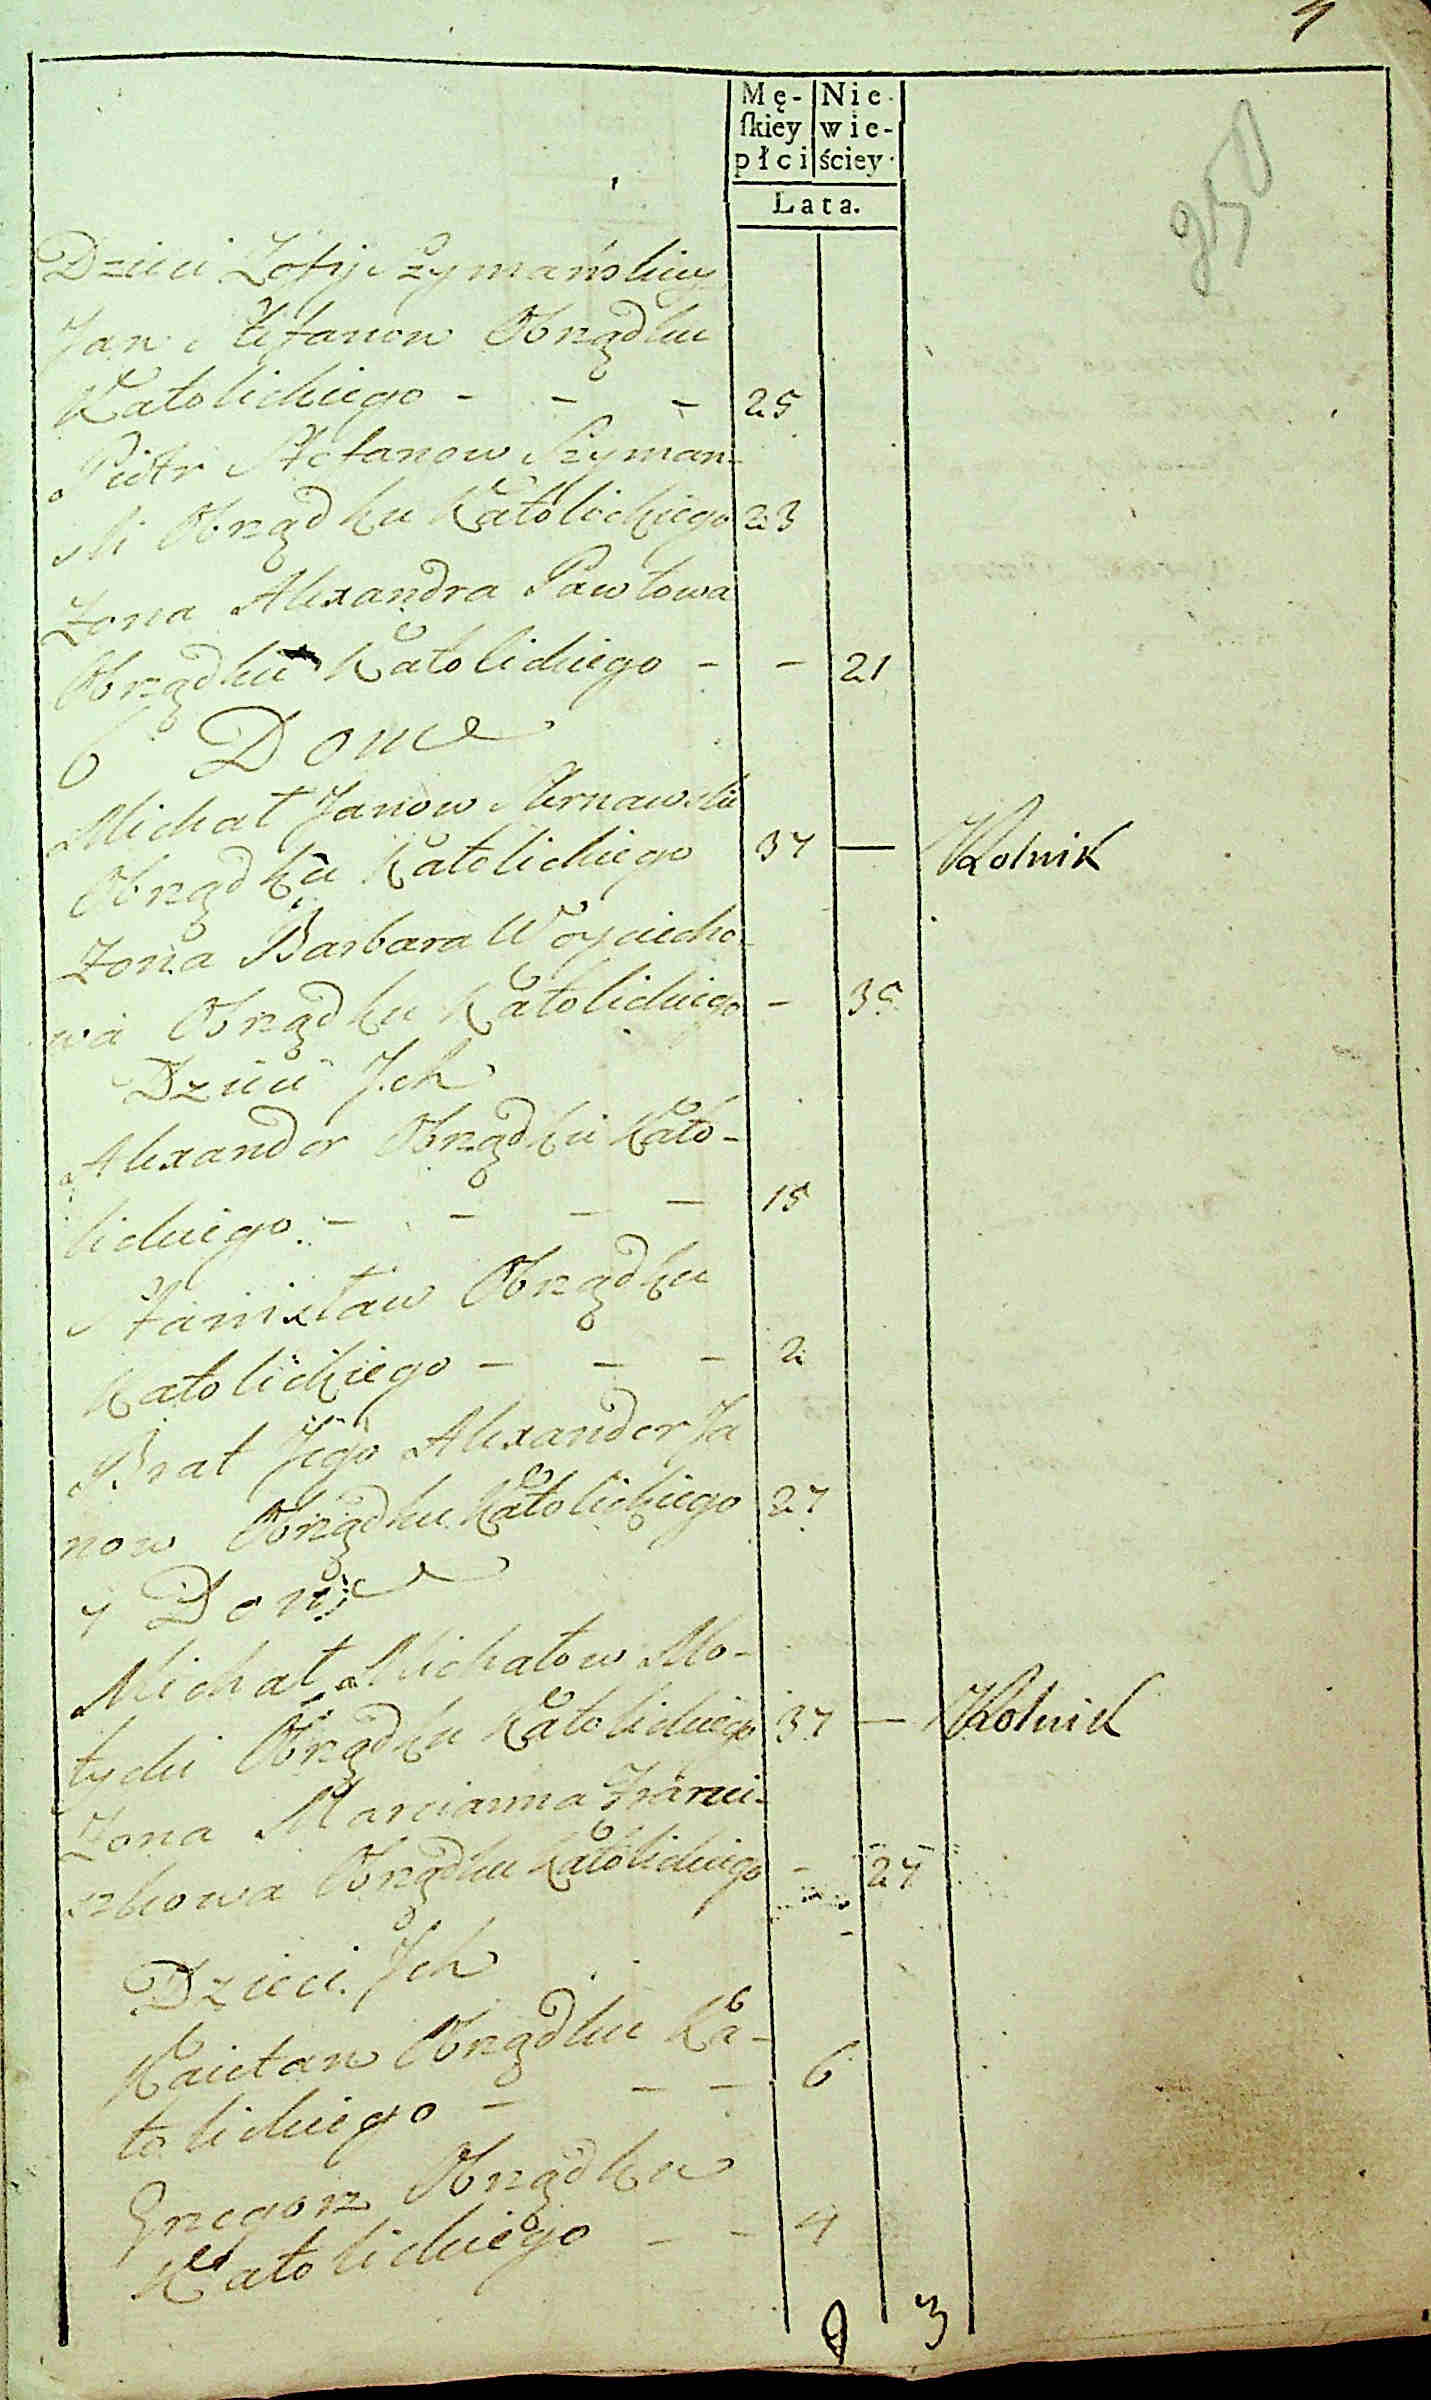 4
Mę- Nie-
ſkiey wie-
płci ściey
Lata.
Dzieci Zofij Szymańskiey
Jan Stefanow Obrządku
Katolickiego - - - 25
Piotr Stefanow Szyman-
ski Obrządku Katolickiego 23
Zona Alexandra Pawłowa
Obrządku Katolickiego - - 21
6 Dom
Michał Janow
Obrządku Katolickiego 37 — Rolnik
Zona Barbara Woyciecho-
wa Obrządku Katolickiego -
Dzieci Ich
Alexander Obrządku Kato-
lickiego - - - - 15
Stanisław Obrządku
Katolickiego - - - 2
Brat Jego Alexander Ja
now Obrządku Katolickiego 27
7 Dom
Michał Michałow Mo-
tycki Obrządku Katolickiego 37 — Rolnik
Zona Marcianna Franci-
szkowa Obrządku Katolickiego - 27
Dzieci Ich
Kaietan Obrządku Ka-
tolickiego - - - 6
Grzegorz Obrządku
Katolickiego - - 4
9 3